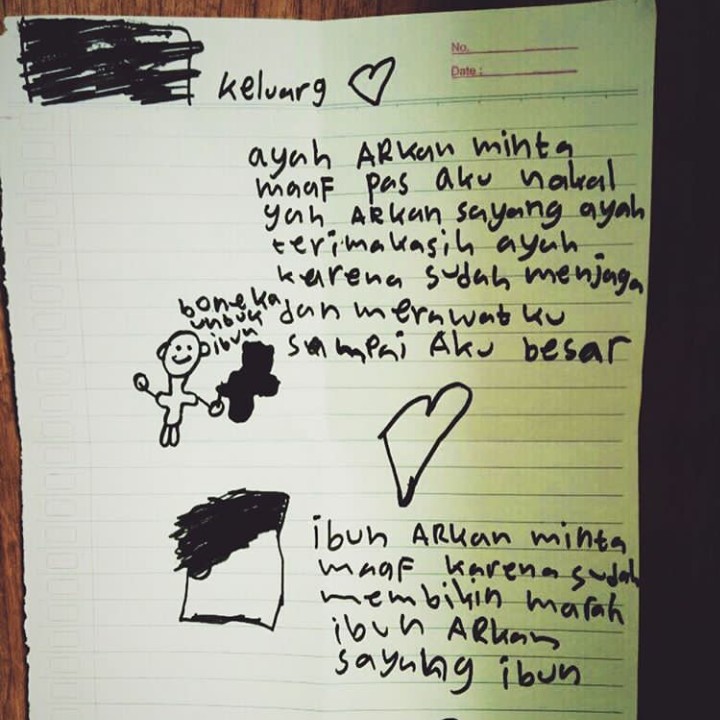 No.
Date :
keluarg
ayah ARkan minta
maaf pas aku nakal
yah ARkan sayang ayah
terimakasih ayah
karena sudah menjaga
dan merawatku
sampai Aku besar
boneka
untuk
ibun
ibun ARkan minta
maaf karena sudah
membikin marah
ibun ARkan
sayang ibun